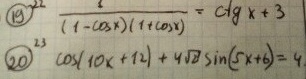 19) 22 1/((1-cosx)(1+cosx)) = ctg x + 3
20) 23 cos(10x+12) + 4√2 sin(5x+6) = 4